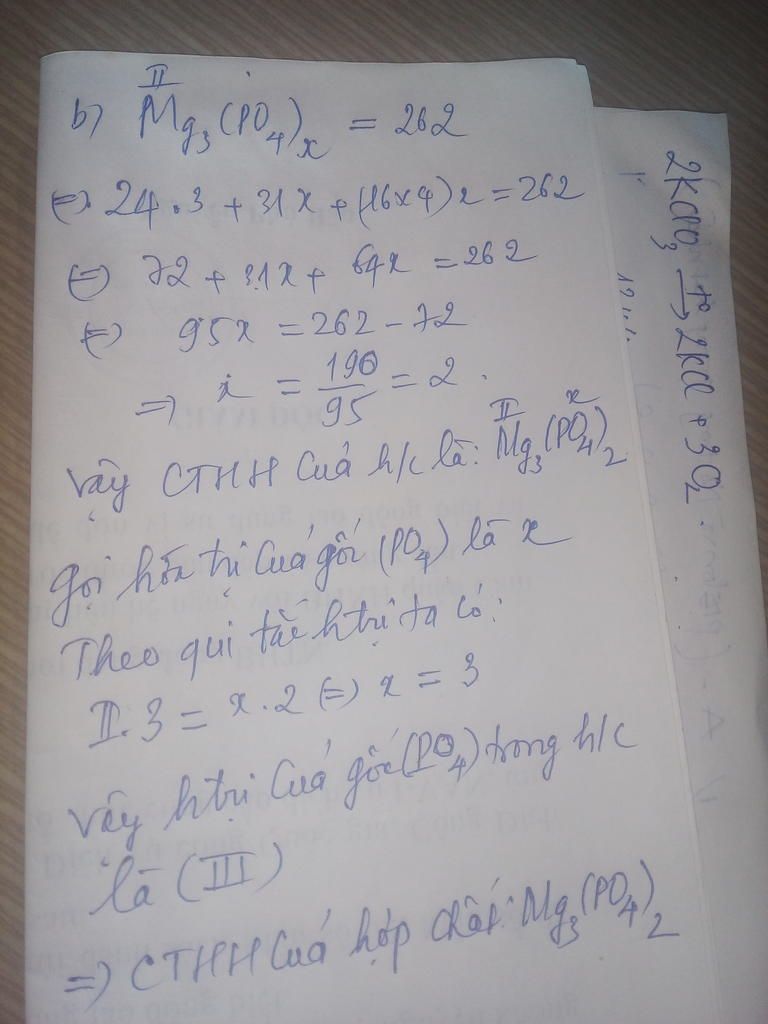 b) Mg₃(PO₄)ₓ = 262
II
⇔ 24.3 + 31x + (16x4)x = 262
⇔ 72 + 31x + 64x = 262
⇔ 95x = 262 - 72
⇒ x = 190/95 = 2.
Vậy CTHH của h/c là: Mg₃(PO₄)₂
II x
gọi hóa trị của gốc (PO₄) là x
Theo qui tắc htrị ta có:
II.3 = x.2 ⇔ x = 3
Vậy htrị của gốc (PO₄) trong h/c
là (III)
⇒ CTHH của hợp chất: Mg₃(PO₄)₂
2KClO₃ →t° 2KCl + 3O₂.